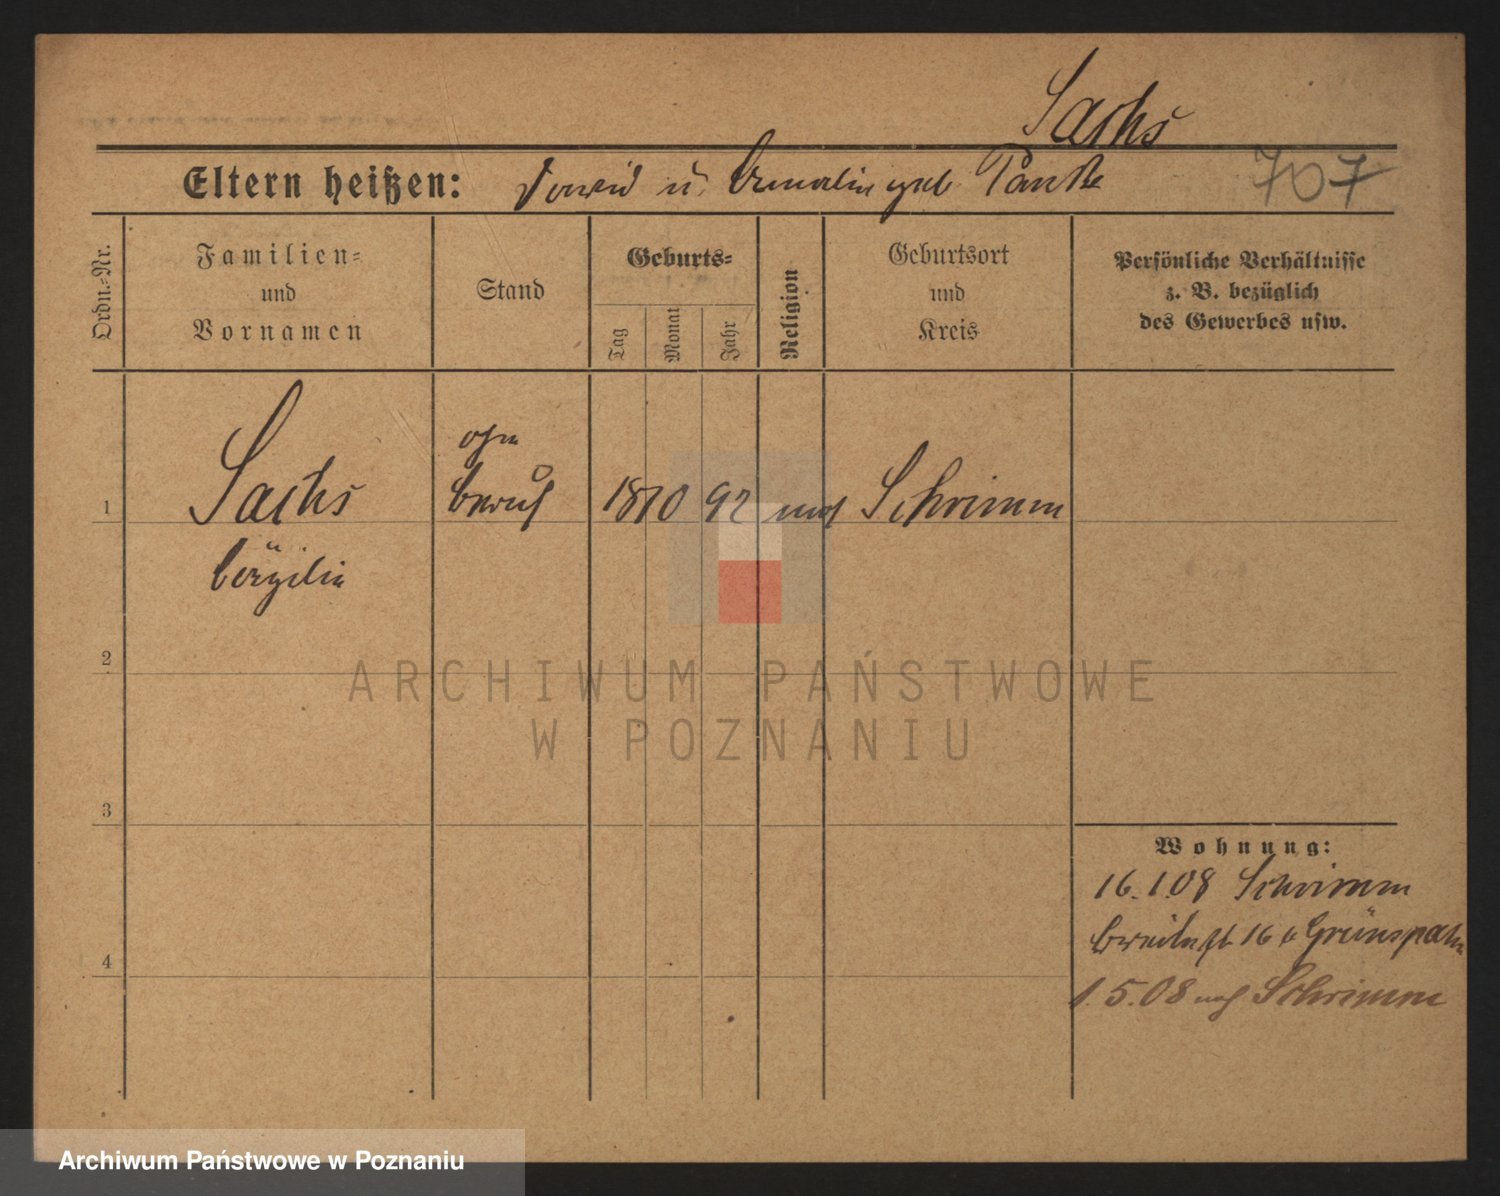 Sachs
Eltern heißen: David u. Amalie geb.
707
Ordn.-Nr.
Familien-
und
Vornamen
Stand
Geburts-
Tag
Monat
Jahr
Religion
Geburtsort
und
Kreis
Persönliche Verhältnisse
z. B. bezüglich
des Gewerbes usw.
1
Sachs
ohne
Beruf
18 10 92 mos Schrimm
2
3
4
Wohnung:
16.1.08 Schrimm
Breitestr. 16 b Grünspahn
1.5.08 nach Schrimm
ARCHIWUM PAŃSTWOWE
W POZNANIU
Archiwum Państwowe w Poznaniu